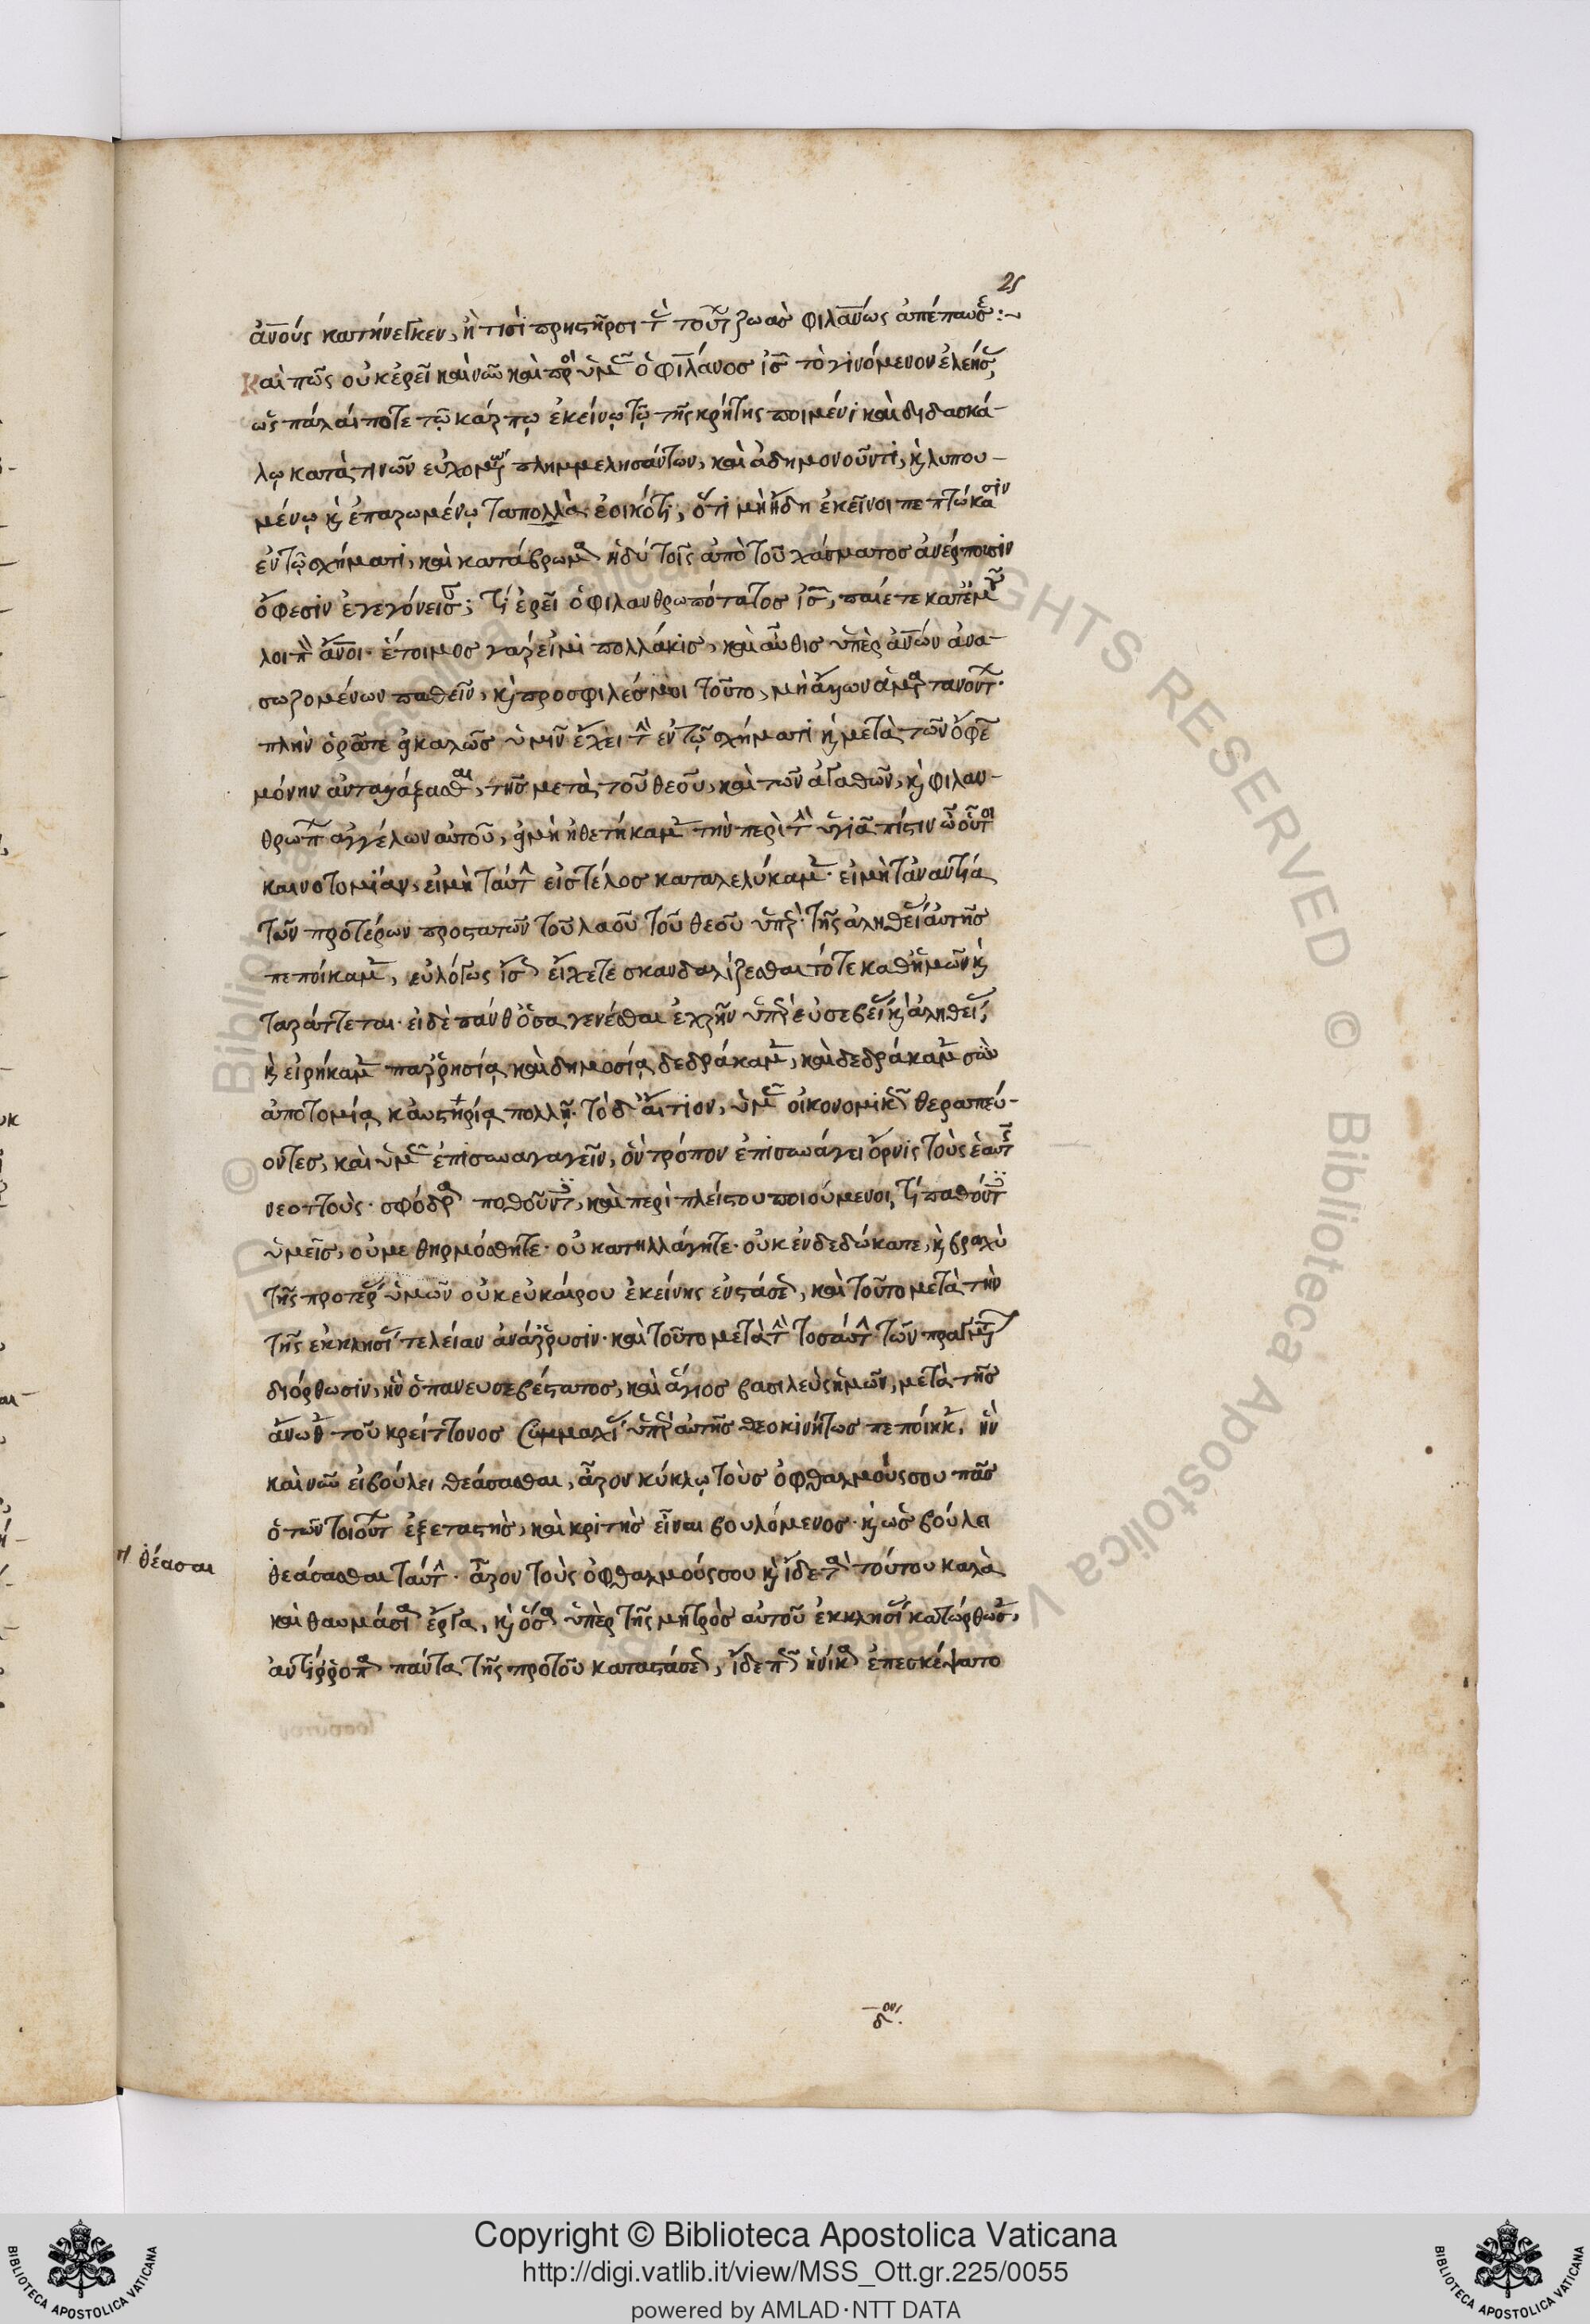 25
ἀνους κατήνεγκεν, ἤ τισι πρηστῆρσι τ τούτ ζωὰς φιλανως ἀπέπαυσε:~
Καὶ πῶς οὐκ ἐρεῖ καὶ νῦν καὶ πρὸ ὑμ ὁ φιλάνος ἰς τὸ γινόμενον ἐλεής,
ὡς πάλαι ποτε τῷ κάρπῳ ἐκείνῳ τῷ τῆς κρήτης ποιμένι καὶ διδασκά-
λῳ κατά τινων εὐχομ πλημμελησάντων, καὶ ἀδημονοῦντι, κ λυπου-
μένῳ κ ἐπαρωμένῳ τὰ πολλὰ ἐοικότι, ὅτι μὴ ἤδη ἐκεῖνοι πεπτώκασιν
ἐν τῷ σχήματι, καὶ κατάβρωμα ἡδὺ τοῖς ἀπὸ τοῦ χάσματος ἀνέρπουσιν
ὄφεσιν ἐγεγόνεισ; τί ἐρεῖ ὁ φιλανθρωπότατος ἰς, παίετε κατ' ἐμ
λοιπ ἄνοι· ἕτοιμος γάρ εἰμι πολλάκις, καὶ αὖθις ὑπὲρ ἀνων ἀνα-
σωζομένων παθεῖν, κ προσφιλές μοι τοῦτο, μὴ ἄλλων ἁμαρτανοντ·
πλὴν ὁρᾶτε εἰ καλῶς ὑμῖν ἔχει τ ἐν τῷ σχήματι κ μετὰ τῶν ὄφε
μόνην ἀνταλλάξασθαι, τῆς μετὰ τοῦ θεοῦ, καὶ τῶν ἀγαθῶν, κ φιλαν-
θρωπ ἀγγέλων αὐτοῦ, εἰ μὴ ἠθετήκαμ τὴν περὶ τ ὑγιᾶ πίστιν
καινοτομίαν, εἰ μὴ ταύτ εἰς τέλος καταλελύκαμ· εἰ μὴ τἀναντία
τῶν προτέρων προστατῶν τοῦ λαοῦ τοῦ θεοῦ ὑπὲρ τῆς ἀληθεί αὐτῆς
πεποίκαμ, εὐλόγως ἴσ εἴχετε σκανδαλίζεσθαι τότε καθ' ἡμῶν κ
ταράττεται· εἰ δὲ πάνθ' ὅσα γενέσθαι ἐχρῆν ὑπὲρ εὐσεβεί κ ἀληθεί,
κ εἰρήκαμ παρρησίᾳ καὶ δημοσίᾳ δεδράκαμ, καὶ δεδράκαμ σὺν
ἀποτομίᾳ κ αὐστηρίᾳ πολλῇ· τὸ δ' αἴτιον, ὑμ οἰκονομικ θεραπεύ-
οντες, καὶ ὑμ ἐπισυναγαγεῖν, ὃν τρόπον ἐπισυνάγει ὄρνις τοὺς ἑαυτ
νεοττούς· σφόδρα ποθοῦντ, καὶ περὶ πλείστου ποιούμενοι, τί παθόντ
ὑμεῖς, οὐ μεθηρμόσθητε· οὐ κατηλλάγητε· οὐκ ἐνδεδώκατε, κ βραχὺ
τῆς προτέρ ὑμῶν οὐκ εὐκαίρου ἐκείνης ἐνστάσε, καὶ τοῦτο μετὰ τὴν
τῆς ἐκκλησί τελείαν ἀνάρρυσιν· καὶ τοῦτο μετὰ τ τοσαύτ τῶν πραγμ
διόρθωσιν, ἣν ὁ πανευσεβέστατος, καὶ ἅγιος βασιλεὺς ἡμῶν, μετὰ τῆς
ἄνωθ τοῦ κρείττονος συμμαχί ὑπὲρ αὐτῆς θεοκινήτως πεποίηκ, ἣν
καὶ νῦν εἰ βούλει θεάσασθαι, ἆρον κύκλῳ τοὺς ὀφθαλμούς σου πᾶς
ὁ τῶν τοιούτ ἐξεταστὴς, καὶ κριτὴς εἶναι βουλόμενος· κ ὡς βούλει
θεάσασθαι ταύτ· ἆρον τοὺς ὀφθαλμούς σου κ ἴδε τὰ τούτου καλὰ
καὶ θαυμάσια ἔργα, κ ὅσα ὑπὲρ τῆς μητρὸς αὐτοῦ ἐκκλησί κατώρθωσ,
ἀντίρροπα πάντα τῆς πρὸ τοῦ καταστάσε, ἴδε π ἡνίκα ἐπεσκέψατο
ἢ θέασαι
δον.
Copyright © Biblioteca Apostolica Vaticana
http://digi.vatlib.it/view/MSS_Ott.gr.225/0055
powered by AMLAD·NTT DATA
BIBLIOTECA APOSTOLICA VATICANA
BIBLIOTECA APOSTOLICA VATICANA